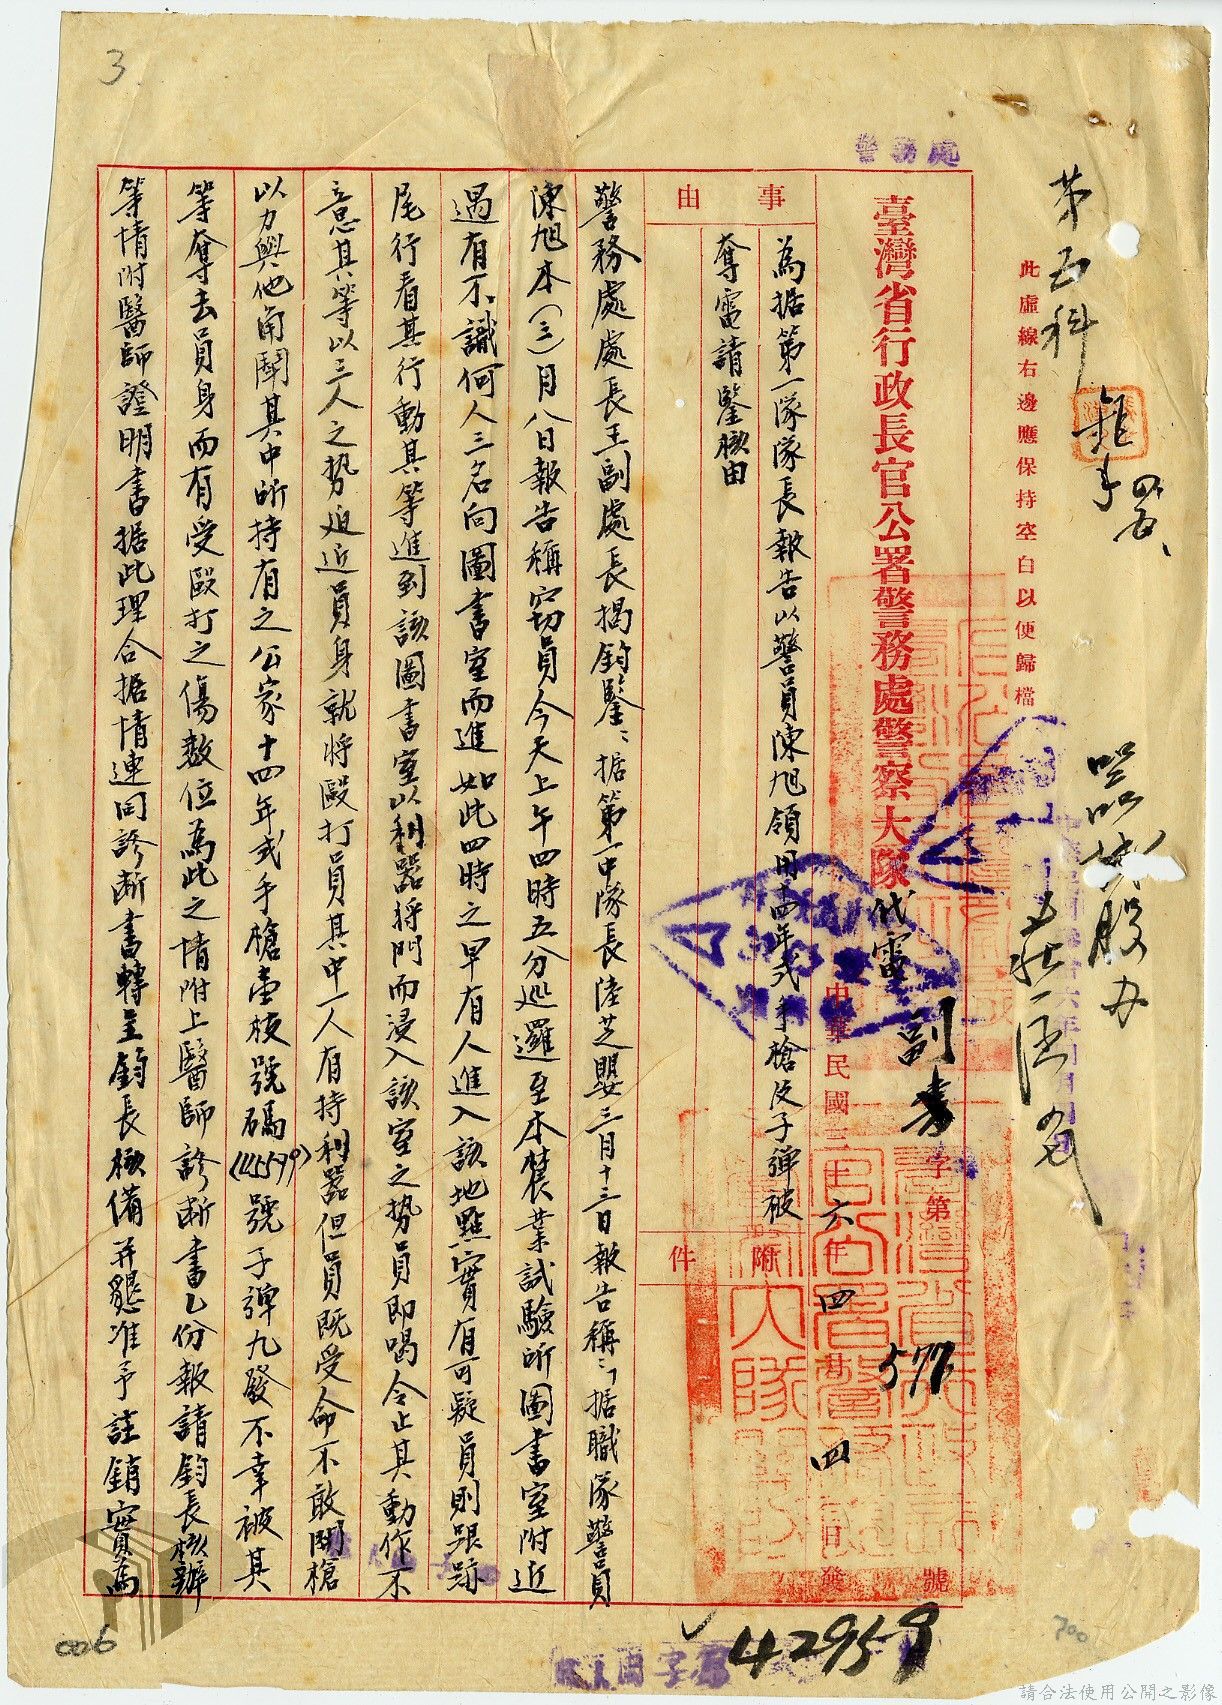 3
警務處
第五科
此虛線右邊應保持空白以便歸檔
臺灣省行政長官公署警務處警察大隊代電
副 字第577號
中華民國三十六年四月四日發
事由
為据第一隊隊長報告以警員陳旭領用十四年式手槍及子彈被
奪電請鑒核由
附件
警務處處長王副處長揭鈞鑒：据第一中隊長陸芝嬰三月十三日報告稱：「据職隊警員
陳旭本（三）月八日報告稱竊員今天上午四時五分巡邏至本農業試驗所圖書室附近
遇有不識何人三名向圖書室而進如此四時之早有人進入該地點實有可疑員則跟跡
尾行看其行動其等進到該圖書室以利器將門而浸入該室之勢員即喝令止其動作不
意其等以三人之勢迫近員身就將毆打員其中一人有持利器但員既受命不敢開槍
以力與他角鬪其中所持有之公家十四年式手槍壹枝號碼（45579）號子彈九發不幸被其
等奪去員身而有受毆打之傷数位為此之情附上醫師診断書乙份報請鈞長核辦
等情附醫師證明書据此理合据情連同診断書轉呈鈞長核備并懇准予註銷實為
42959
006
700
請合法使用公開之影像